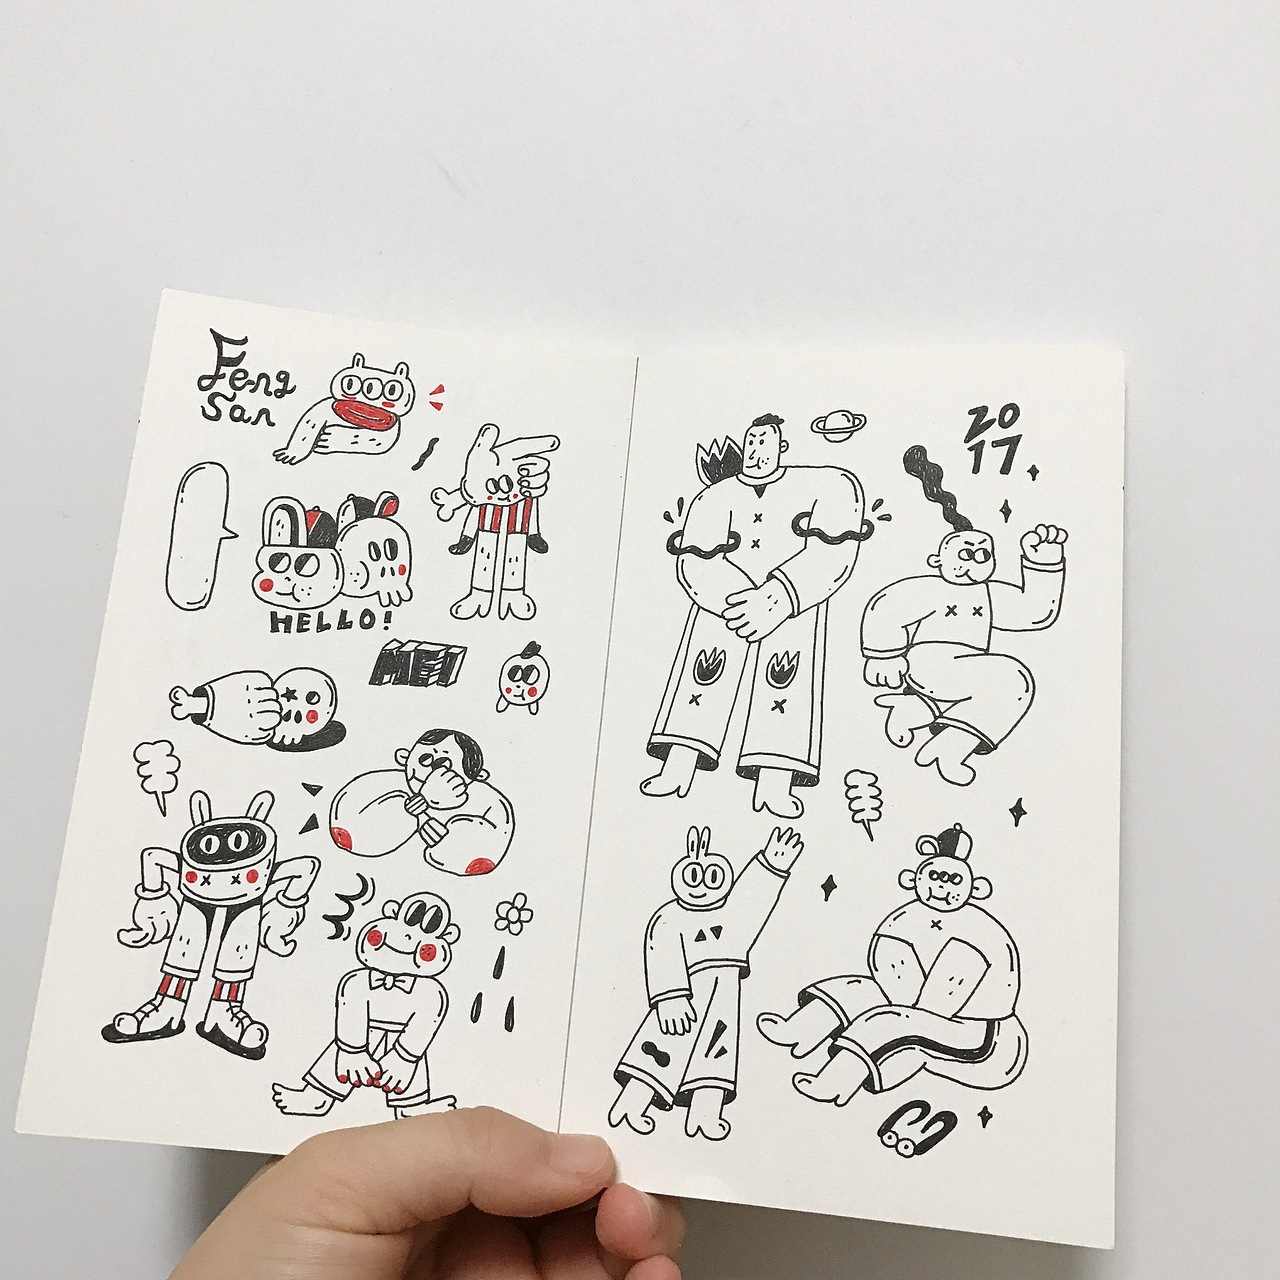 Feng
San
HELLO!
MEI
20
17